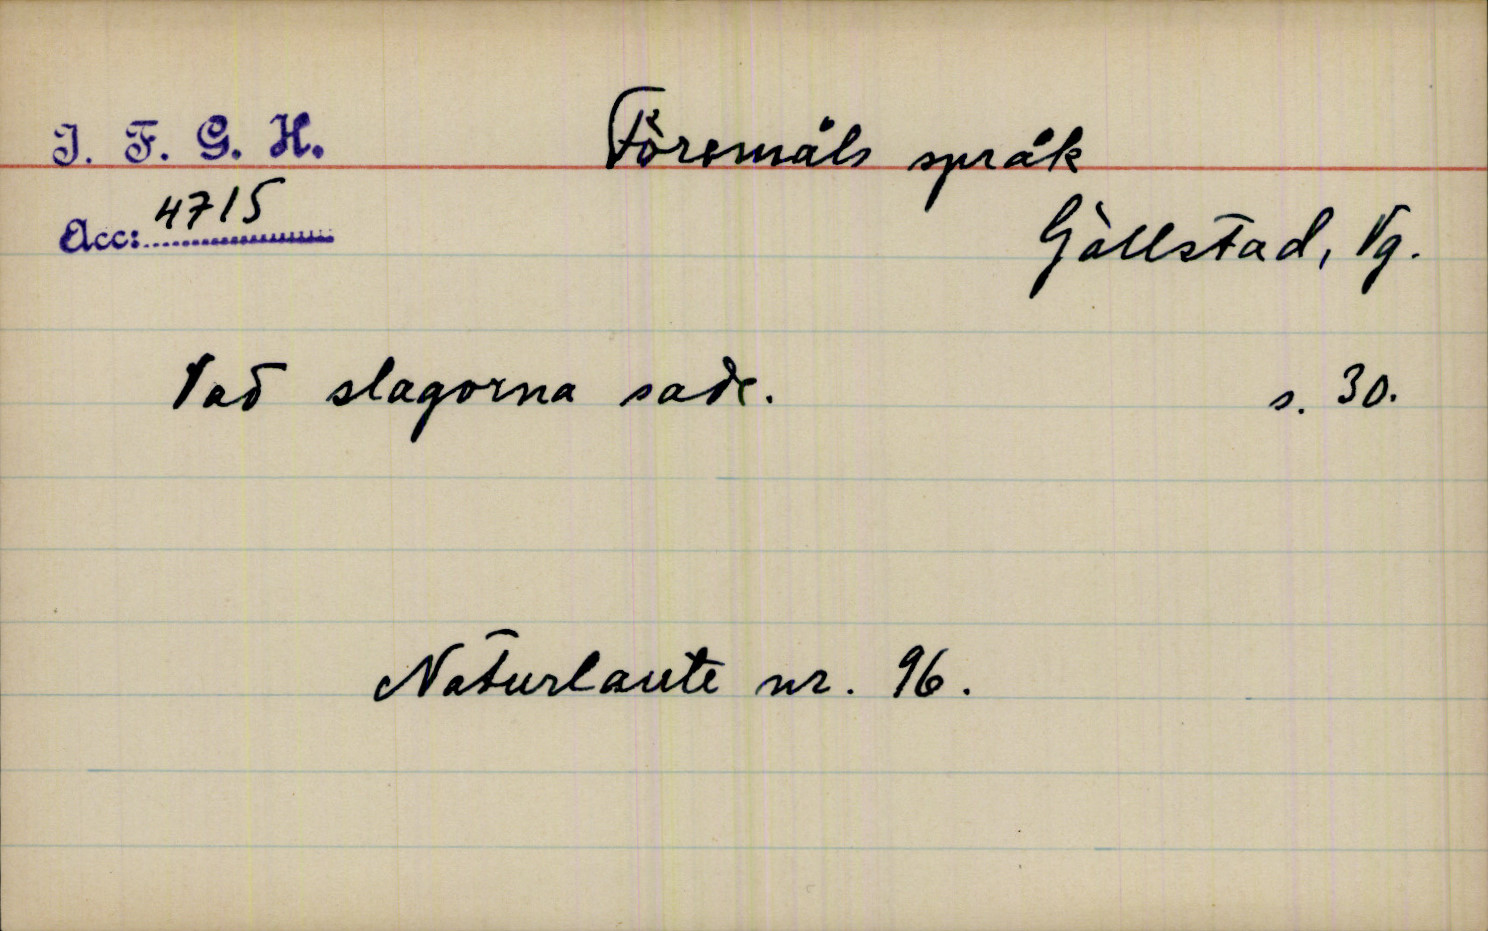 I. F. G. H.
Föremåls språk
Acc: 4715
Gällstad, Vg.
Vad slagorna sade. s. 30.
Naturlaute nr. 96.